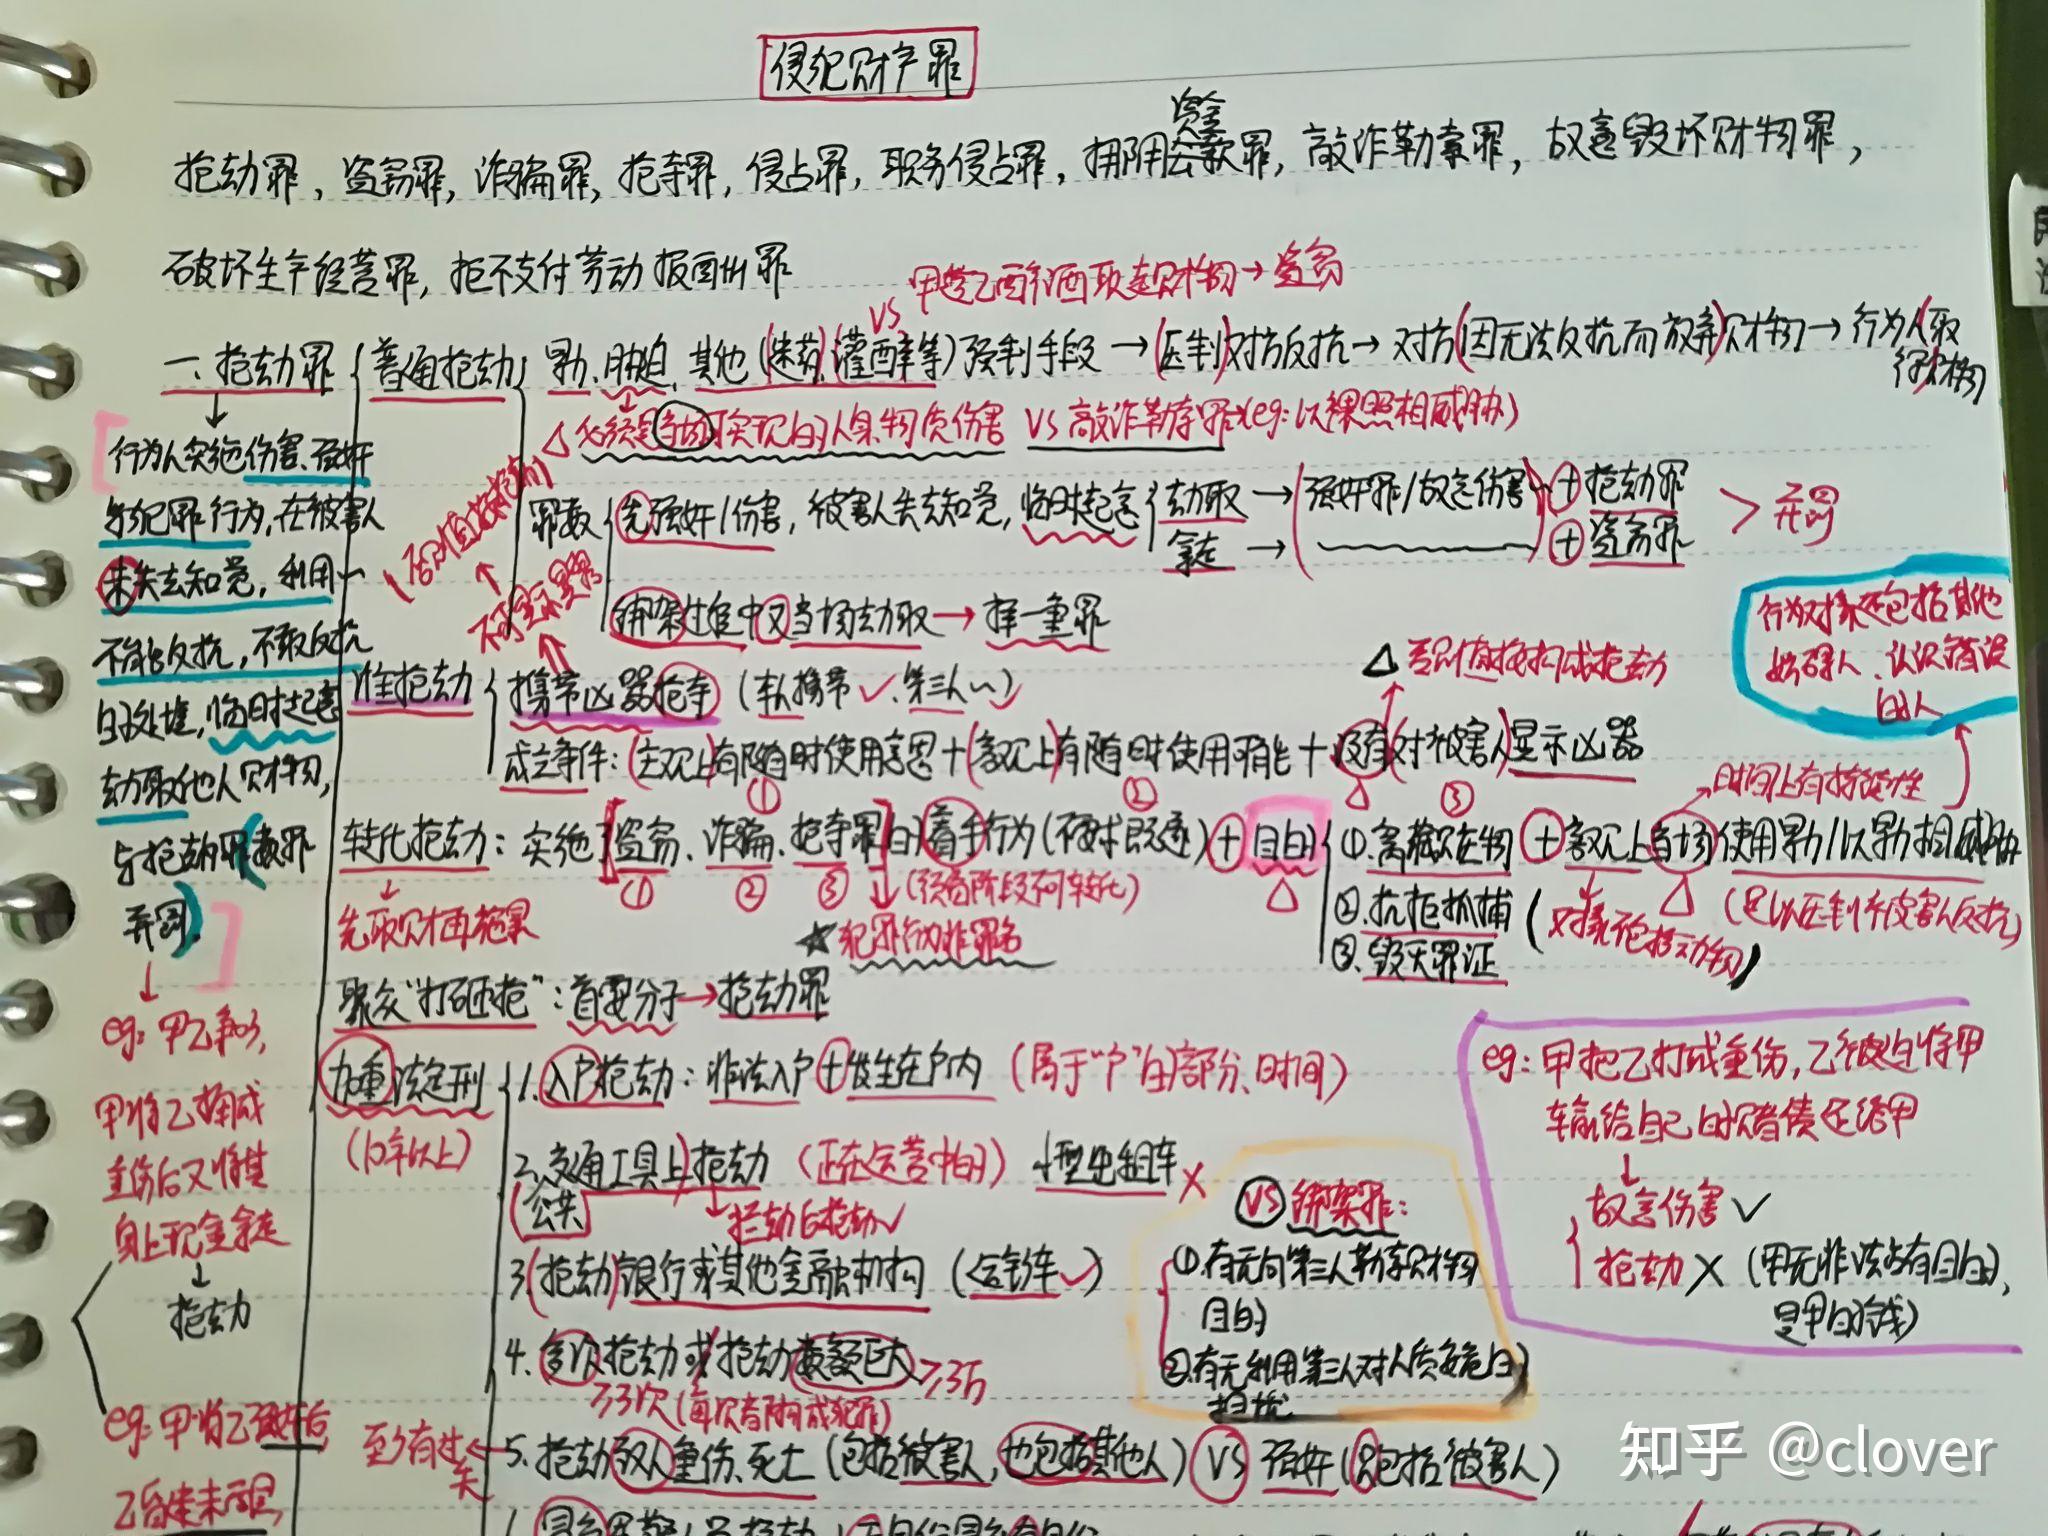 侵犯财产罪
资金
抢劫罪，盗窃罪，诈骗罪，抢夺罪，侵占罪，职务侵占罪，挪用公款罪，敲诈勒索罪，故意毁坏财物罪，
破坏生产经营罪，拒不支付劳动报酬罪
VS 甲趁乙醉酒取走财物→盗窃
一.抢劫罪
普通抢劫
暴力、胁迫、其他(迷药、灌醉等)强制手段→压制对方反抗→对方(因无法反抗而放弃)财物→行为人取
得财物
△必须是当场可实现的人身、物质伤害 VS 敲诈勒索罪(eg:以裸照相威胁)
罪数
先强奸/伤害，被害人失去知觉，临时起意
劫取→(强奸罪/故意伤害)+抢劫罪
拿走→ +盗窃罪
>并罚
绑架过程中又当场劫取→择一重罪
行为人实施伤害、强奸
等犯罪行为，在被害人
未失去知觉，利用
不能反抗，不敢反抗
的处境，临时起意
劫取他人财物，
与抢劫罪数罪
并罚。
eg:甲乙争吵，
甲将乙捅成
重伤后又将其
身上现金拿走
↓
抢劫
eg:甲将乙强奸后
乙昏迷未醒，
准抢劫
携带凶器抢夺(本人携带✓、第三人~)
不可显示、暴露
(否则直接抢劫)
成立条件：(主观上)有随时使用意思+(客观上)有随时使用可能+没有(对被害人)显示凶器
① ② △ ③
△否则直接构成抢劫
行为对象还包括其他
妨碍人、认识错误
的人
转化抢劫：实施[盗窃、诈骗、抢夺罪]的着手行为(不要求既遂)+目的
① ② ③
(预备阶段不可转化)
★犯罪行为非罪名
先取财再施暴
①.窝藏赃物
②.抗拒抓捕
③.毁灭罪证
+客观上当场使用暴力/以暴力相威胁
时间上有持续性
(足以压制被害人反抗)
(对象不包括动物)
聚众“打砸抢”：首要分子→抢劫罪
加重法定刑
(10年以上)
1.入户抢劫：非法入户+发生在户内 (属于“户”的部分、时间)
2.交通工具上抢劫 (正在运营中的) 小型出租车×
公共
拦劫后抢劫✓
3.抢劫银行或其他金融机构 (运钞车✓)
4.多次抢劫或抢劫数额巨大≥3万
≥3次(每次皆构成犯罪)
5.抢劫致人重伤、死亡(包括被害人，也包括其他人) VS 强奸(只包括被害人)
至少有过失
VS 绑架罪：
①.有无向第三人勒索财物
目的
②有无利用第三人对人质安危的
担忧
eg:甲把乙打成重伤，乙被迫将甲
车输给自己的赌债还给甲
↓
故意伤害✓
抢劫× (甲无非法占有目的，
是甲的钱)
知乎 @clover